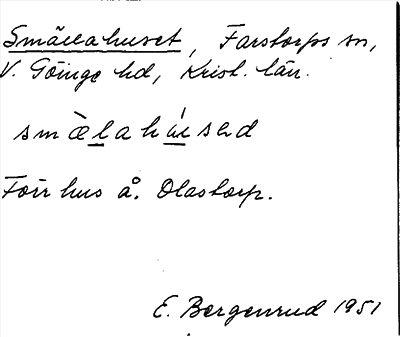 Smällahuset, Farstorps sn,
V. Göinge hd, Krist. län.
smæ̀lahúsəd
Torrhus å. Olastorp.
E. Bergenrud 1951